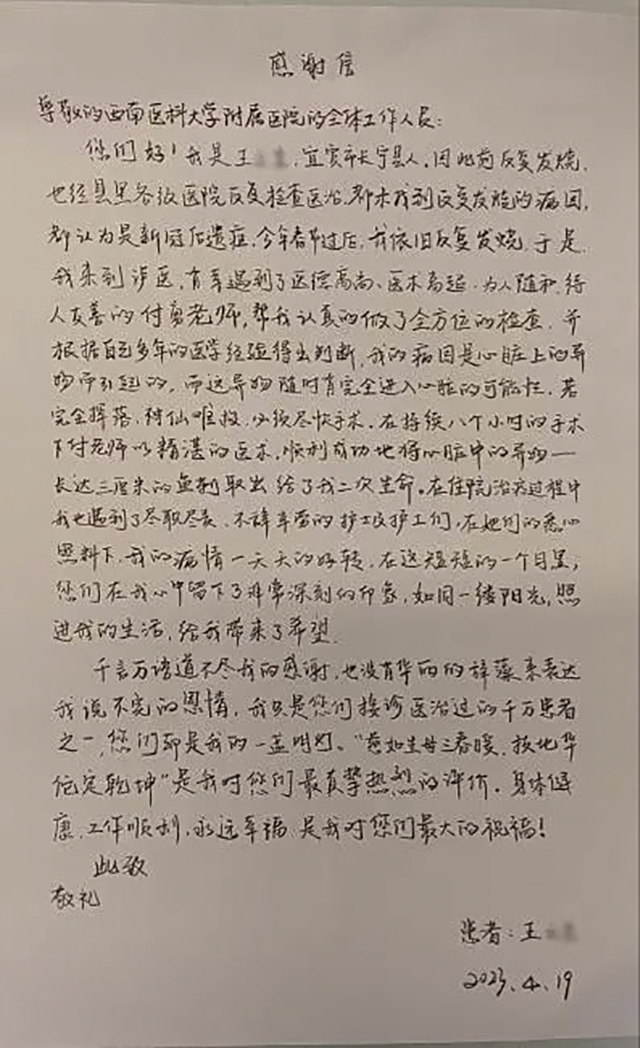 感谢信
尊敬的西南医科大学附属医院的全体工作人员:
您们好!我是王 ,宜宾市长宁县人,因此前反复发烧,
也经县里各级医院反复检查医治,都未找到反复发烧的病因,
都认为是新冠后遗症,今年春节过后,我依旧反复发烧,于是,
我来到泸医,有幸遇到了医德高尚、医术高超、为人随和、待
人友善的付勇老师,帮我认真的做了全方位的检查,并
根据自己多年的医学经验得出判断,我的病因是心脏上的异
物而引起的,而这异物随时有完全进入心脏的可能性,若
完全掉落,神仙难救,必须尽快手术。在持续八个小时的手术
下付老师以精湛的医术,顺利成功地将心脏中的异物一
长达三厘米的鱼刺取出给了我二次生命。在住院治疗过程中
我也遇到了尽职尽责、不辞辛劳的护士及护工们,在她们的悉心
照料下,我的病情一天天的好转,在这短短的一个月里,
您们在我心中留下了非常深刻的印象,如同一缕阳光,照
进我的生活,给我带来了希望。
千言万语道不尽我的感谢,也没有华丽的辞藻来表达
我说不完的恩情,我只是您们接诊医治过的千万患者
之一,您们却是我的一盏明灯。“慈如生母三春暖,技比华
佗定乾坤”是我对您们最真挚热烈的评价。身体健
康、工作顺利、永远幸福是我对您们最大的祝福!
此致
敬礼
患者:王
2023.4.19